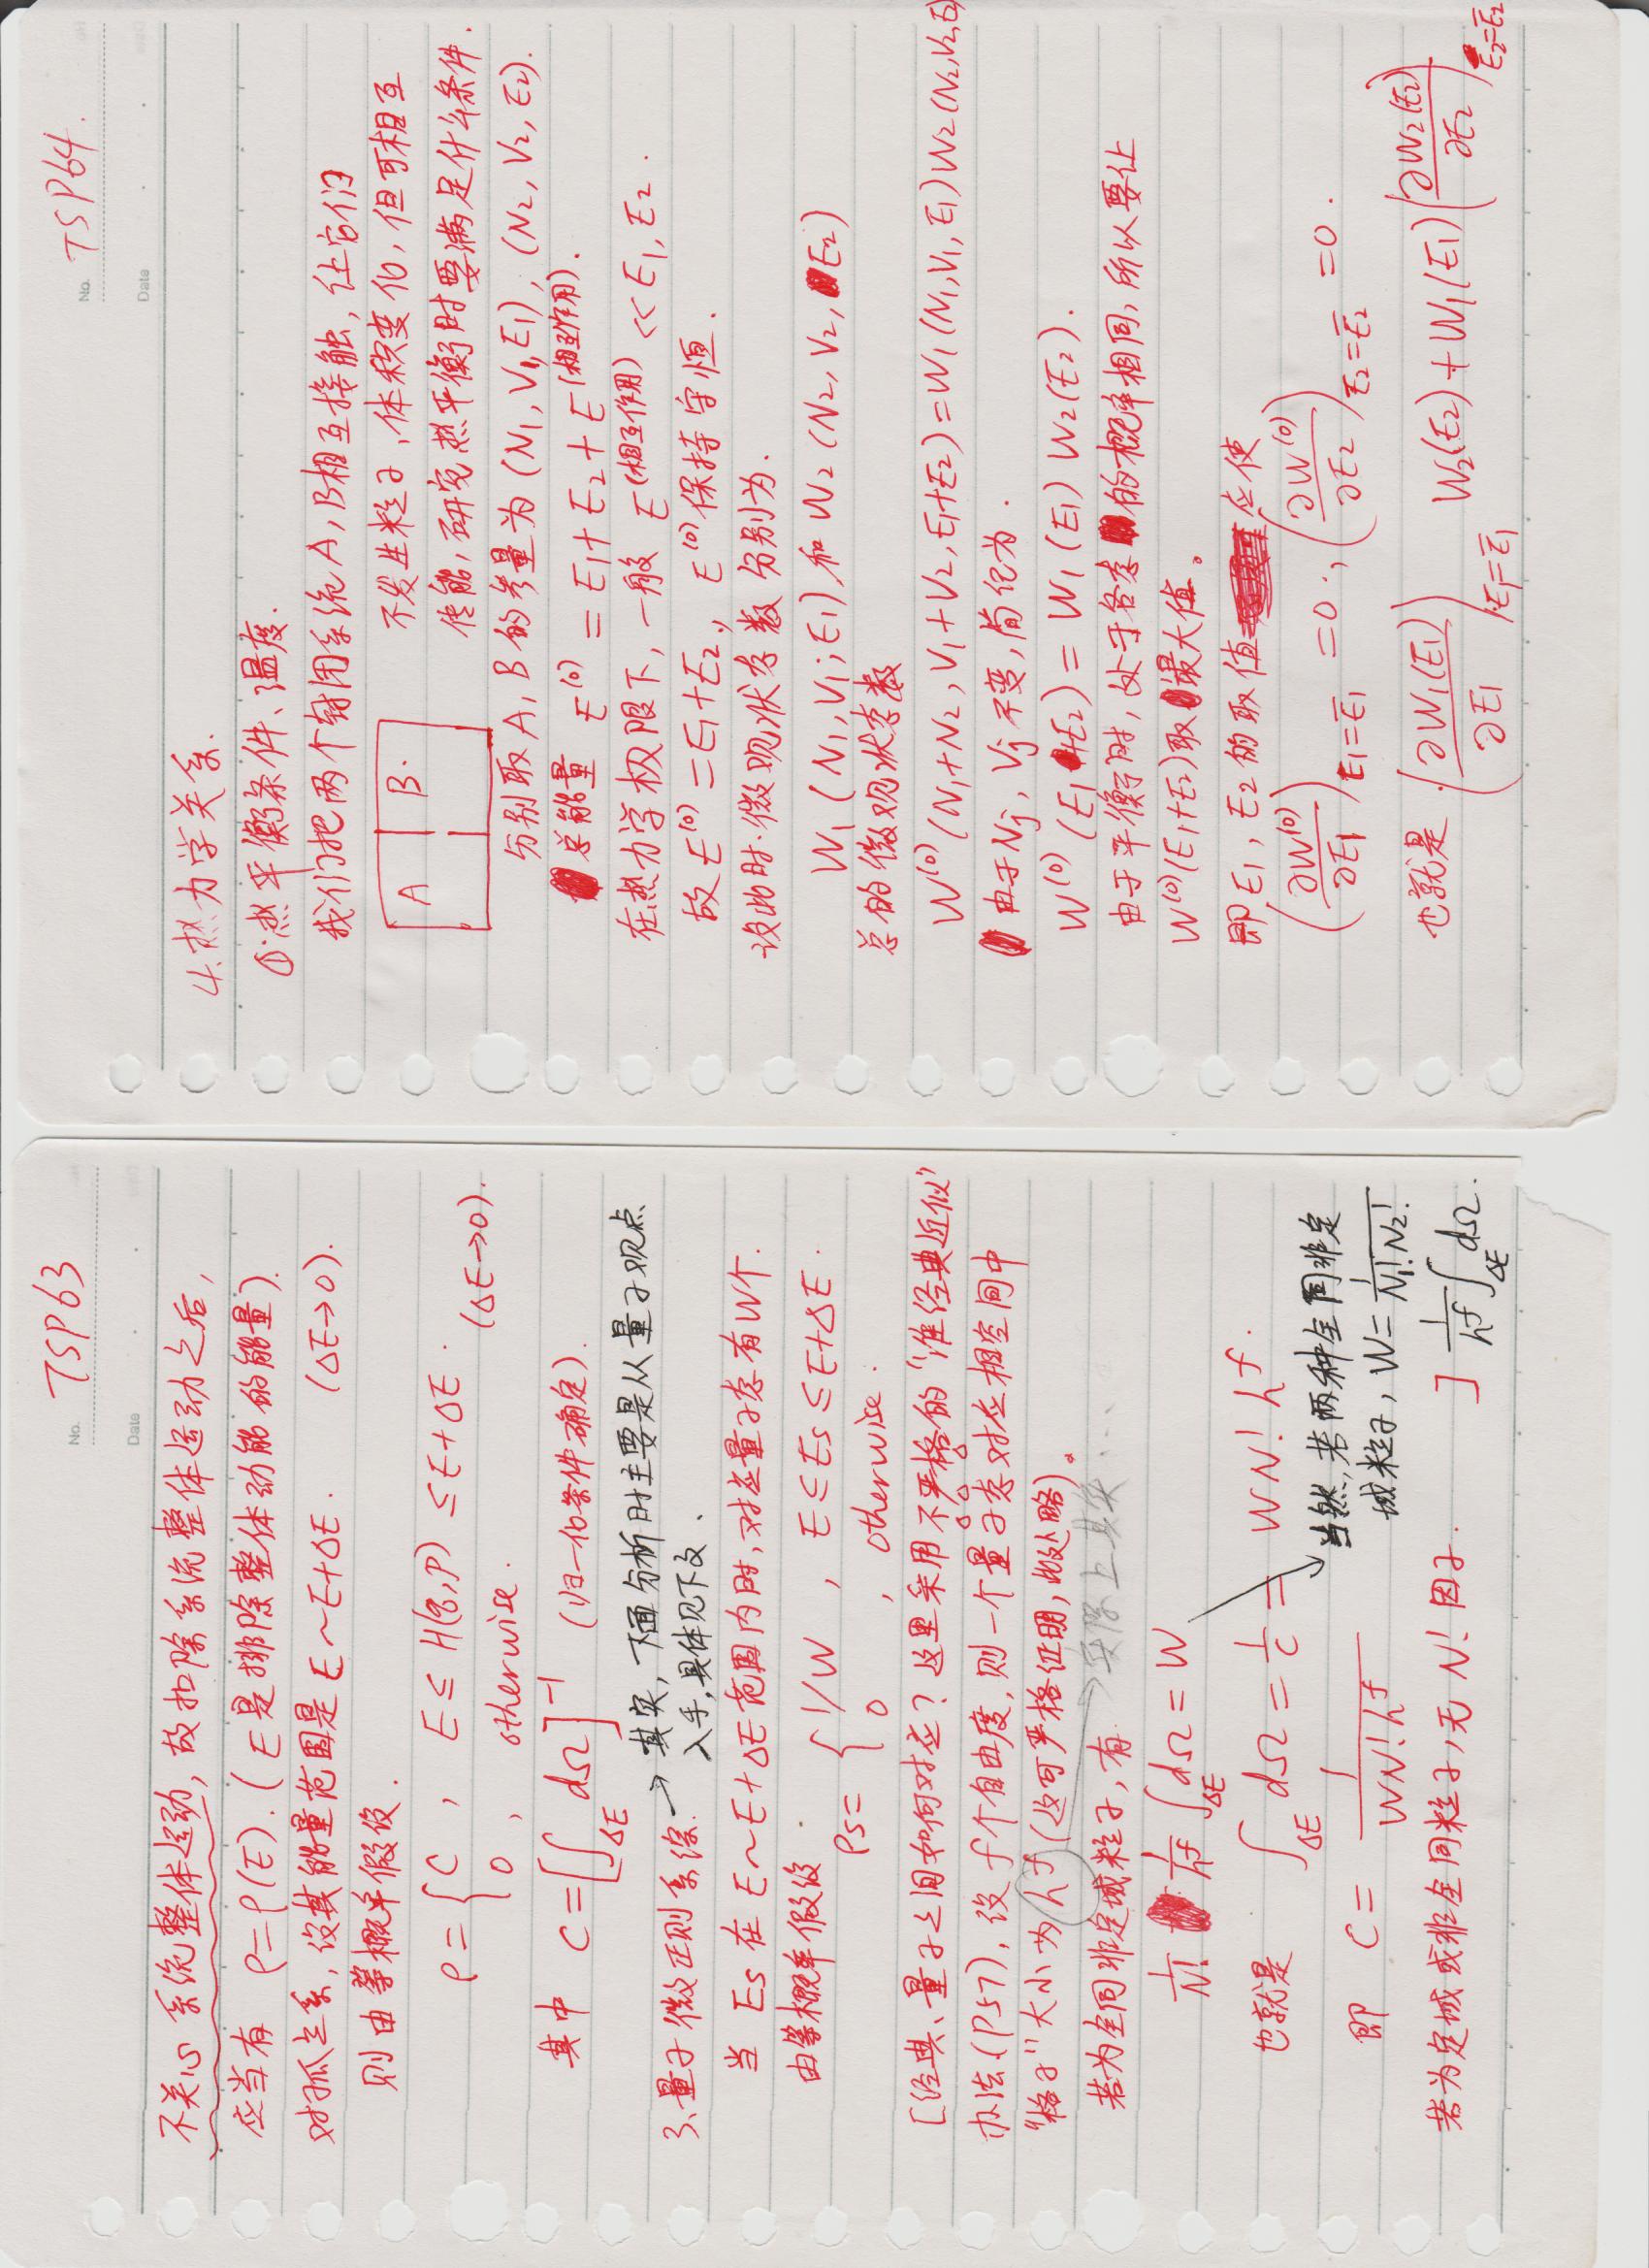 No. TSP63
Date
不关心系统整体运动,故扣除系统整体运动之后,
应当有 ρ=ρ(E).(E是排除整体动能的能量).
对孤立系,设其能量范围是 E~E+ΔE. (ΔE→0).
则由等概率假设.
ρ= { C , E ≤ H(q,p) ≤ E+ΔE.
0 , otherwise. (ΔE→0).
其中 C=[∫_ΔE dΩ]^-1 (归一化条件确定).
3.量子微正则系综. → 其实,下面分析时主要是从量子观点
入手,具体见下文.
当 Es 在 E~E+ΔE 范围内时,对应量子态有W个.
由等概率假设
ρs= { 1/W , E ≤ Es ≤ E+ΔE.
0 , otherwise.
[经典、量子之间如何对应?这里采用不严格的“准经典近似”
办法(P57),设 f个自由度,则一个量子态对应相空间中
“格子”大小为 h^f (这可严格证明,此处略)。
→ 实际上其实...
若为全同非定域粒子,有
1/N! 1/h^f ∫_ΔE dΩ = W
也就是 ∫_ΔE dΩ = 1/C = WN! h^f.
即 C = 1/(WN! h^f)
当然,若两种全同非定
域粒子,W= 1/(N1! N2!)
1/h^f ∫_ΔE dΩ.
若为定域或非全同粒子,无 N! 因子. ]
No. TSP64.
Date
4.热力学关系.
①.热平衡条件、温度.
我们把两个封闭系统A,B相互接触,让它们
A B.
不发生粒子、体积变化,但可相互
传能,研究热平衡时要满足什么条件.
分别取A,B的参量为 (N1,V1,E1),(N2,V2,E2).
总能量 E^(0) = E1+E2+E^(相互作用).
在热力学极限下,一般 E^(相互作用) << E1,E2.
故 E^(0)=E1+E2, E^(0)保持守恒.
设此时.微观状态数分别为.
W1(N1,V1;E1) 和 W2(N2,V2,E2)
总的微观状态数
W^(0)(N1+N2,V1+V2,E1+E2)=W1(N1,V1,E1)W2(N2,V2,E2)
由于Nj,Vj不变,简记为.
W^(0)(E1+E2)= W1(E1) W2(E2).
由于平衡时,处于各态的概率相同,所以要让
W^(0)(E1+E2)取最大值。
即 E1,E2的取值应使
(∂W^(0)/∂E1)_E1=Ē1 =0., (∂W^(0)/∂E2)_E2=Ē2 =0.
也就是.(∂W1(E1)/∂E1)_E1=Ē1 W2(E2)+W1(E1)(∂W2(E2)/∂E2)_E2=Ē2